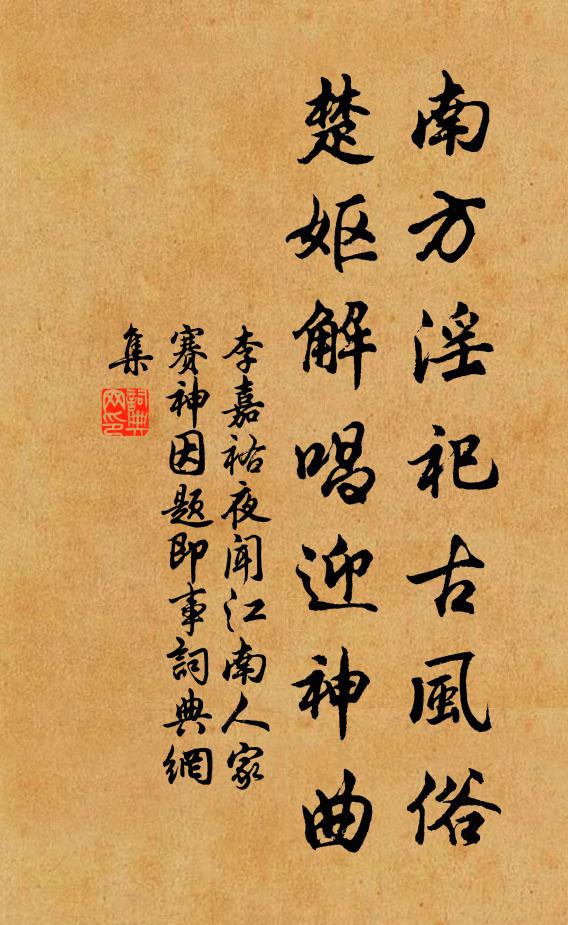 南方淫祀古風俗
楚妪解唱迎神曲
李嘉祐夜闻江南人家
赛神因题即事詞典網
集
詞典
网印